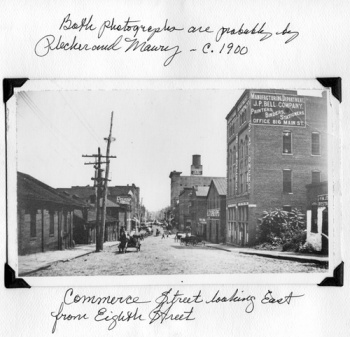 Both photographs are probably by
Plecker and Maury - c. 1900
MANUFACTURING DEPARTMENT
J.P. BELL COMPANY.
PRINTERS,
BINDERS, STATIONERS
OFFICE 816 MAIN ST.
Commerce Street looking East
from Eighth Street